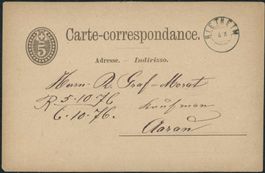 5
Carte-correspondance.
RIETHEIM
Adresse. — Indirizzo.
Herrn R. Graf-Morat
R 5.10.76
Kaufman
C. 10.76.
Aarau